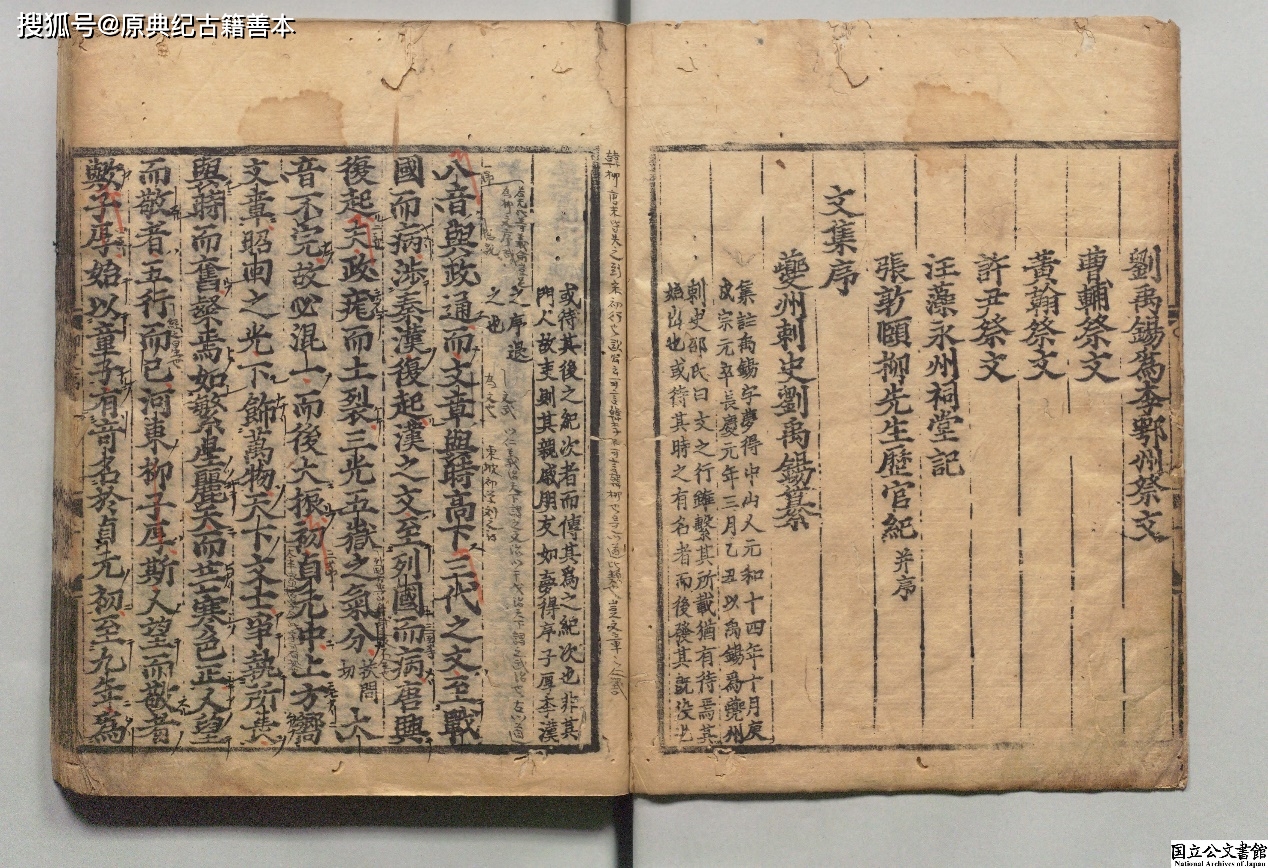 搜狐号@原典纪古籍善本
劉禹錫為李鄂州祭文
曹輔祭文
黃翰祭文
許尹祭文
汪藻永州祠堂記
張敦頤柳先生歷官紀 并序
文集序
夔州刺史劉禹錫纂
集註禹錫字夢得中山人元和十四年十月庚
戌宗元卒長慶元年三月乙丑以禹錫為夔州
刺史邵氏曰文之行雖繫其所載猶有待焉其
始出也或待其時之有名者而後發其既没也
或待其後之紀次者而傳其為之紀次也非其
門人故吏則其親戚朋友如夢得序子厚李漢
之序退
之也
八音與政通而文章與時高下三代之文至戰
國而病涉秦漢復起漢之文至列國而病唐興
復起夫政痝而土裂三光五嶽之氣分 扶問切 大
音不完故必混一而後大振初貞元中上方嚮
文章昭囬之光下飾萬物天下文士爭執所長
與時而奮粲焉如繁星麗天而芒寒色正人望
而敬者五行而已河東柳子厚斯人望而敬者
歟子厚始以童子有竒名於貞元初至九年為
国立公文書館
National Archives of Japan